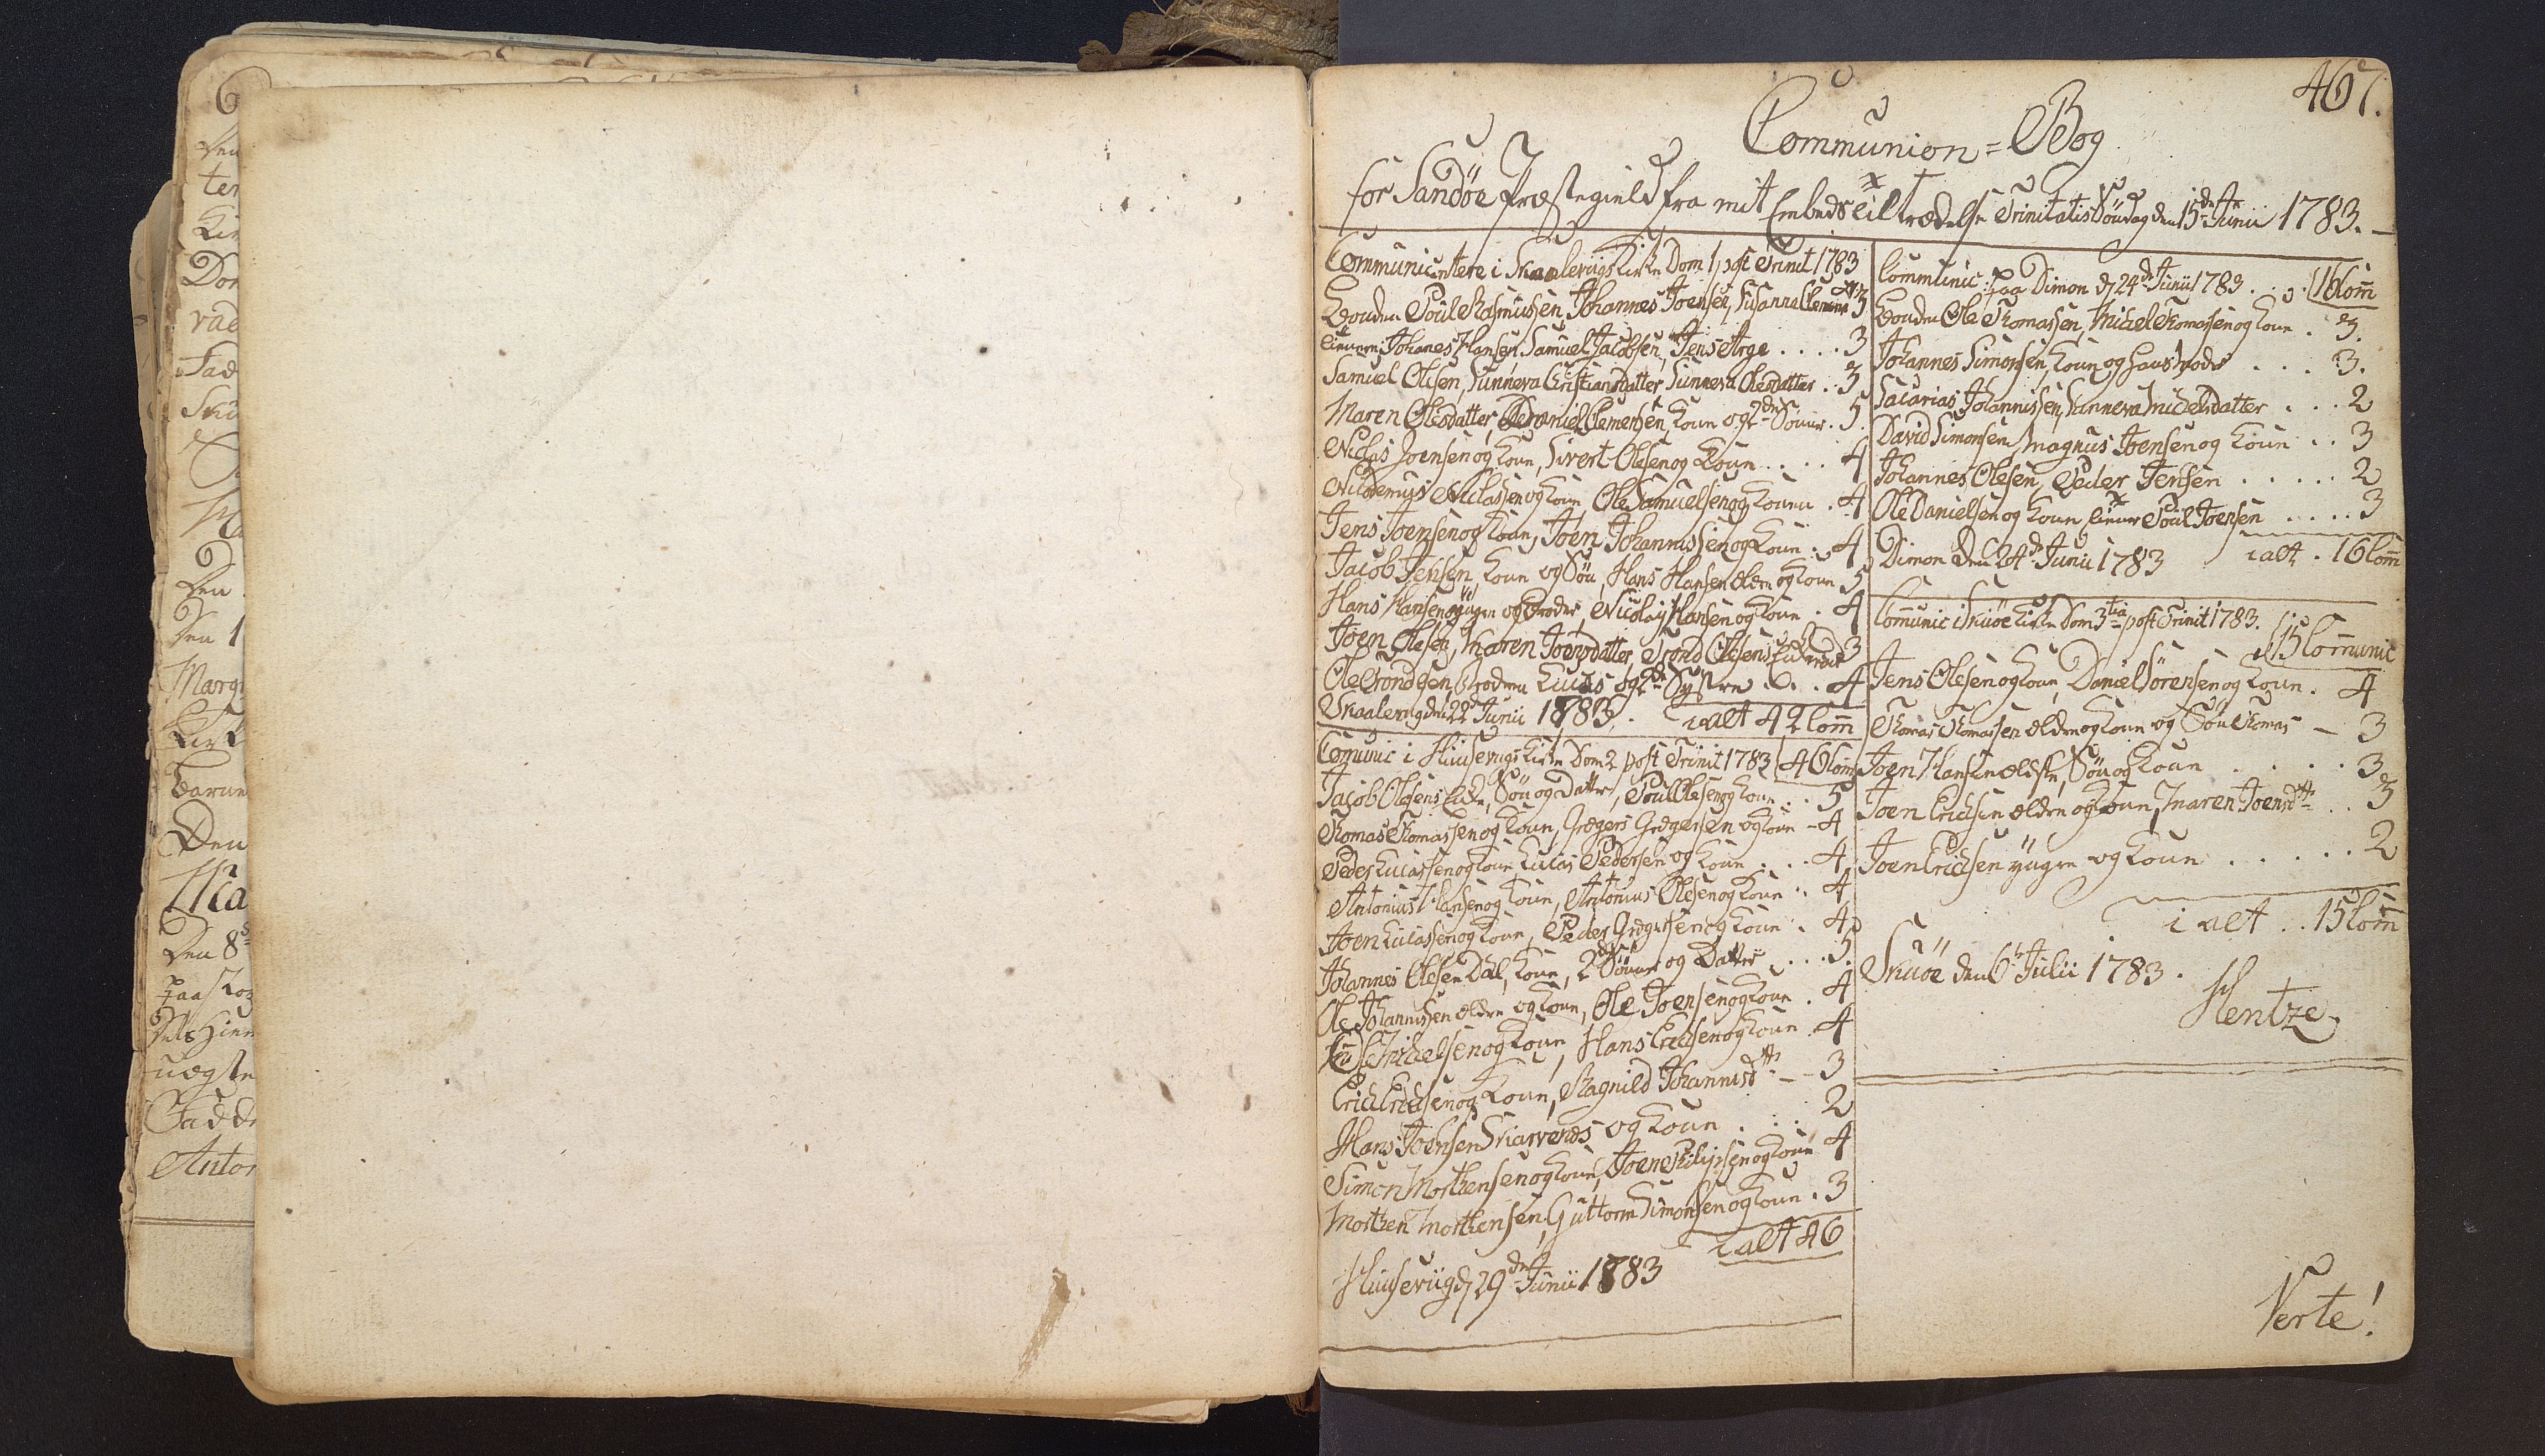 467.
Communion=Bog
for Sandöe Præstegield fra mit Embeds tiltrædelse Trinitatis Söndag den 15de Junii 1783.
Communicantere i Skaalevigs Kirke Dom 1 post Trinit 1783
Bonden Poul Rasmussen, Johannes Joensen, Susanna Clemens 3
Johanes Hansen, Samuel Jacobsen, Jens Arge .... 3
Samuel Olesen, Sunneva Christiansdatter, Sunneva Olesdatter .. 3
Maren Olesdatter, Daniel Clemensen, Kone og 2de Sönner . 5
Niclas Joensen og Kone, Sivert Olesen og Kone .... 4
Nicodemus Niclassen og Kone, Ole Samuelsen og Konen . 4
Jens Joensen og Kone, Joen Johannissen og Kone . 4
Jacob Jensen Kone og Sön, Hans Hansen ældre og Kone 5
Hans Hansen yngre og Broder, Nicolay Hansen og Kone . 4
Joen Olesen, Maren Joensdatter, Trond Olesens Enke 3
Ole Trondsen, Broderen Lucas og 2de Systre . . . 4
Skaalevig den 22de Junii 1783. i alt 42 Com̄
Com̄unic i Huusevigs Kirke Dom 2 post Trinit 1783 46 Com̄
Jacob Olesens Enke, Sön og Datter, Poul Olesen og Kone . . 5
Thomas Thomassen og Kone, Gregers Gregersen og Kone - 4
Peder Lucassen og Kone Lucas Pedersen og Kone . . . 4
Antonius Hansen og Kone, Antonius Olesen og Kone . 4
Joen Lucassen og Kone, Peder Gregersen og Kone . 4
Johannes Olesen Dal, Kone, 2de Sönner og Datter . . . 5.
Ole Johannissen ældre og Kone, Ole Joensen og Kone . 4
Michelsen og Kone, Hans Erichsen og Kone . 4
Erich Erichsen og Kone, Ragnild Johannisdtr - 3
Hans Joensen Skarvenes og Kone . . . 2
Simon Morthensen og Kone, Joen Philipsen og Kone 4
Morthen Morthensen, Guttorm Simonsen og Kone . 3
i alt 46
Huusevig d. 29de Junii 1783
Communic: paa Dimon d. 24de Junii 1783 . . . 16 Com̄
Bonden Ole Thomassen, Michel Thomassen og Kone . 3.
Johannes Simonsen, Kone og hans Moder . . . 3.
Sacarias Johannissen, Sunneva Michelsdatter . . . 2
David Simonsen, Magnus Joensen og Kone . . 3
Johannes Olesen, Peder Jensen . . . . . 2
Ole Danielsen og Kone Poul Joensen . . . . 3
Dimon den 24de Junii 1783 i alt . 16 Com̄
Com̄unic i Skuöe Kirke Dom 3tia post Trinit 1783.
15 Com̄unic
Jens Olesen og Kone, Daniel Sörensen og Kone . 4
Thomas Thomassen ældre og Kone og Sön Thomas - 3
Joen Hansen ældste, Sön og Kone . . . . 3
Joen Erichsen ældre og Kone, Maren Joensdtr . . 3
Joen Erichsen yngre og Kone . . . . . . 2
i alt . . 15 Com̄
Skuöe den 6te Julii 1783.
Hentze
Verte!